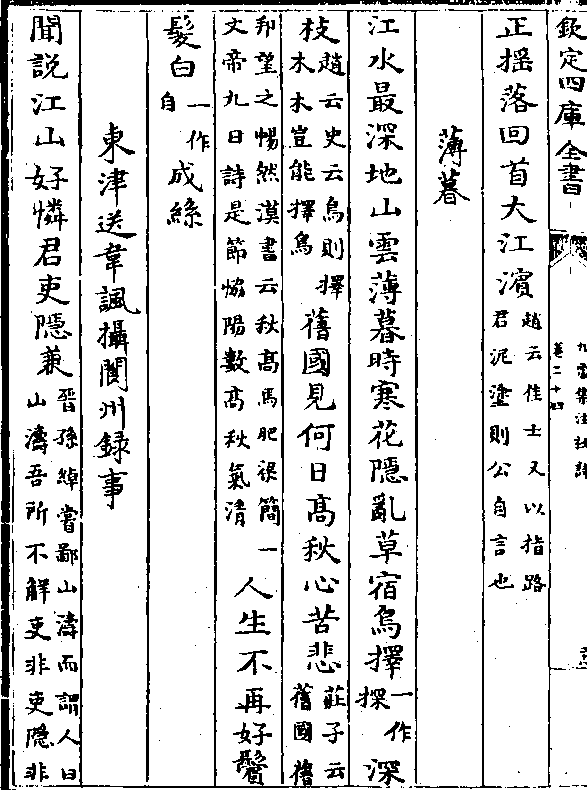 欽定四庫全書
九家集注杜詩
卷二十四
正摇落回首大江濱趙云佳士又以指路君泥塗則公自言也
薄暮
江水最深地山雲薄暮時寒花隱亂草宿鳥擇一作探深
枝趙云史云鳥則擇木木豈能擇鳥舊國見何日髙秋心苦悲莊子云舊國舊
都望之暢然漢書云秋髙馬肥梁簡文帝九日詩是節協陽數髙秋氣清人生不再好鬢
髮白一作自成絲
東津送韋諷攝閬州録事
聞説江山好憐君吏隱兼晉孫綽嘗鄙山濤而謂人曰山濤吾所不解吏非吏隱非